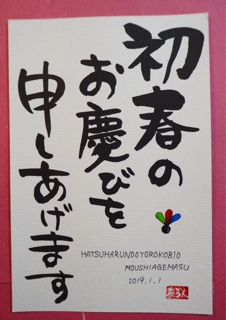 初春の
お慶びを
申しあげます
HATSUHARUNOOYOROKOBIO
MOUSHIAGEMASU
2019.1.1